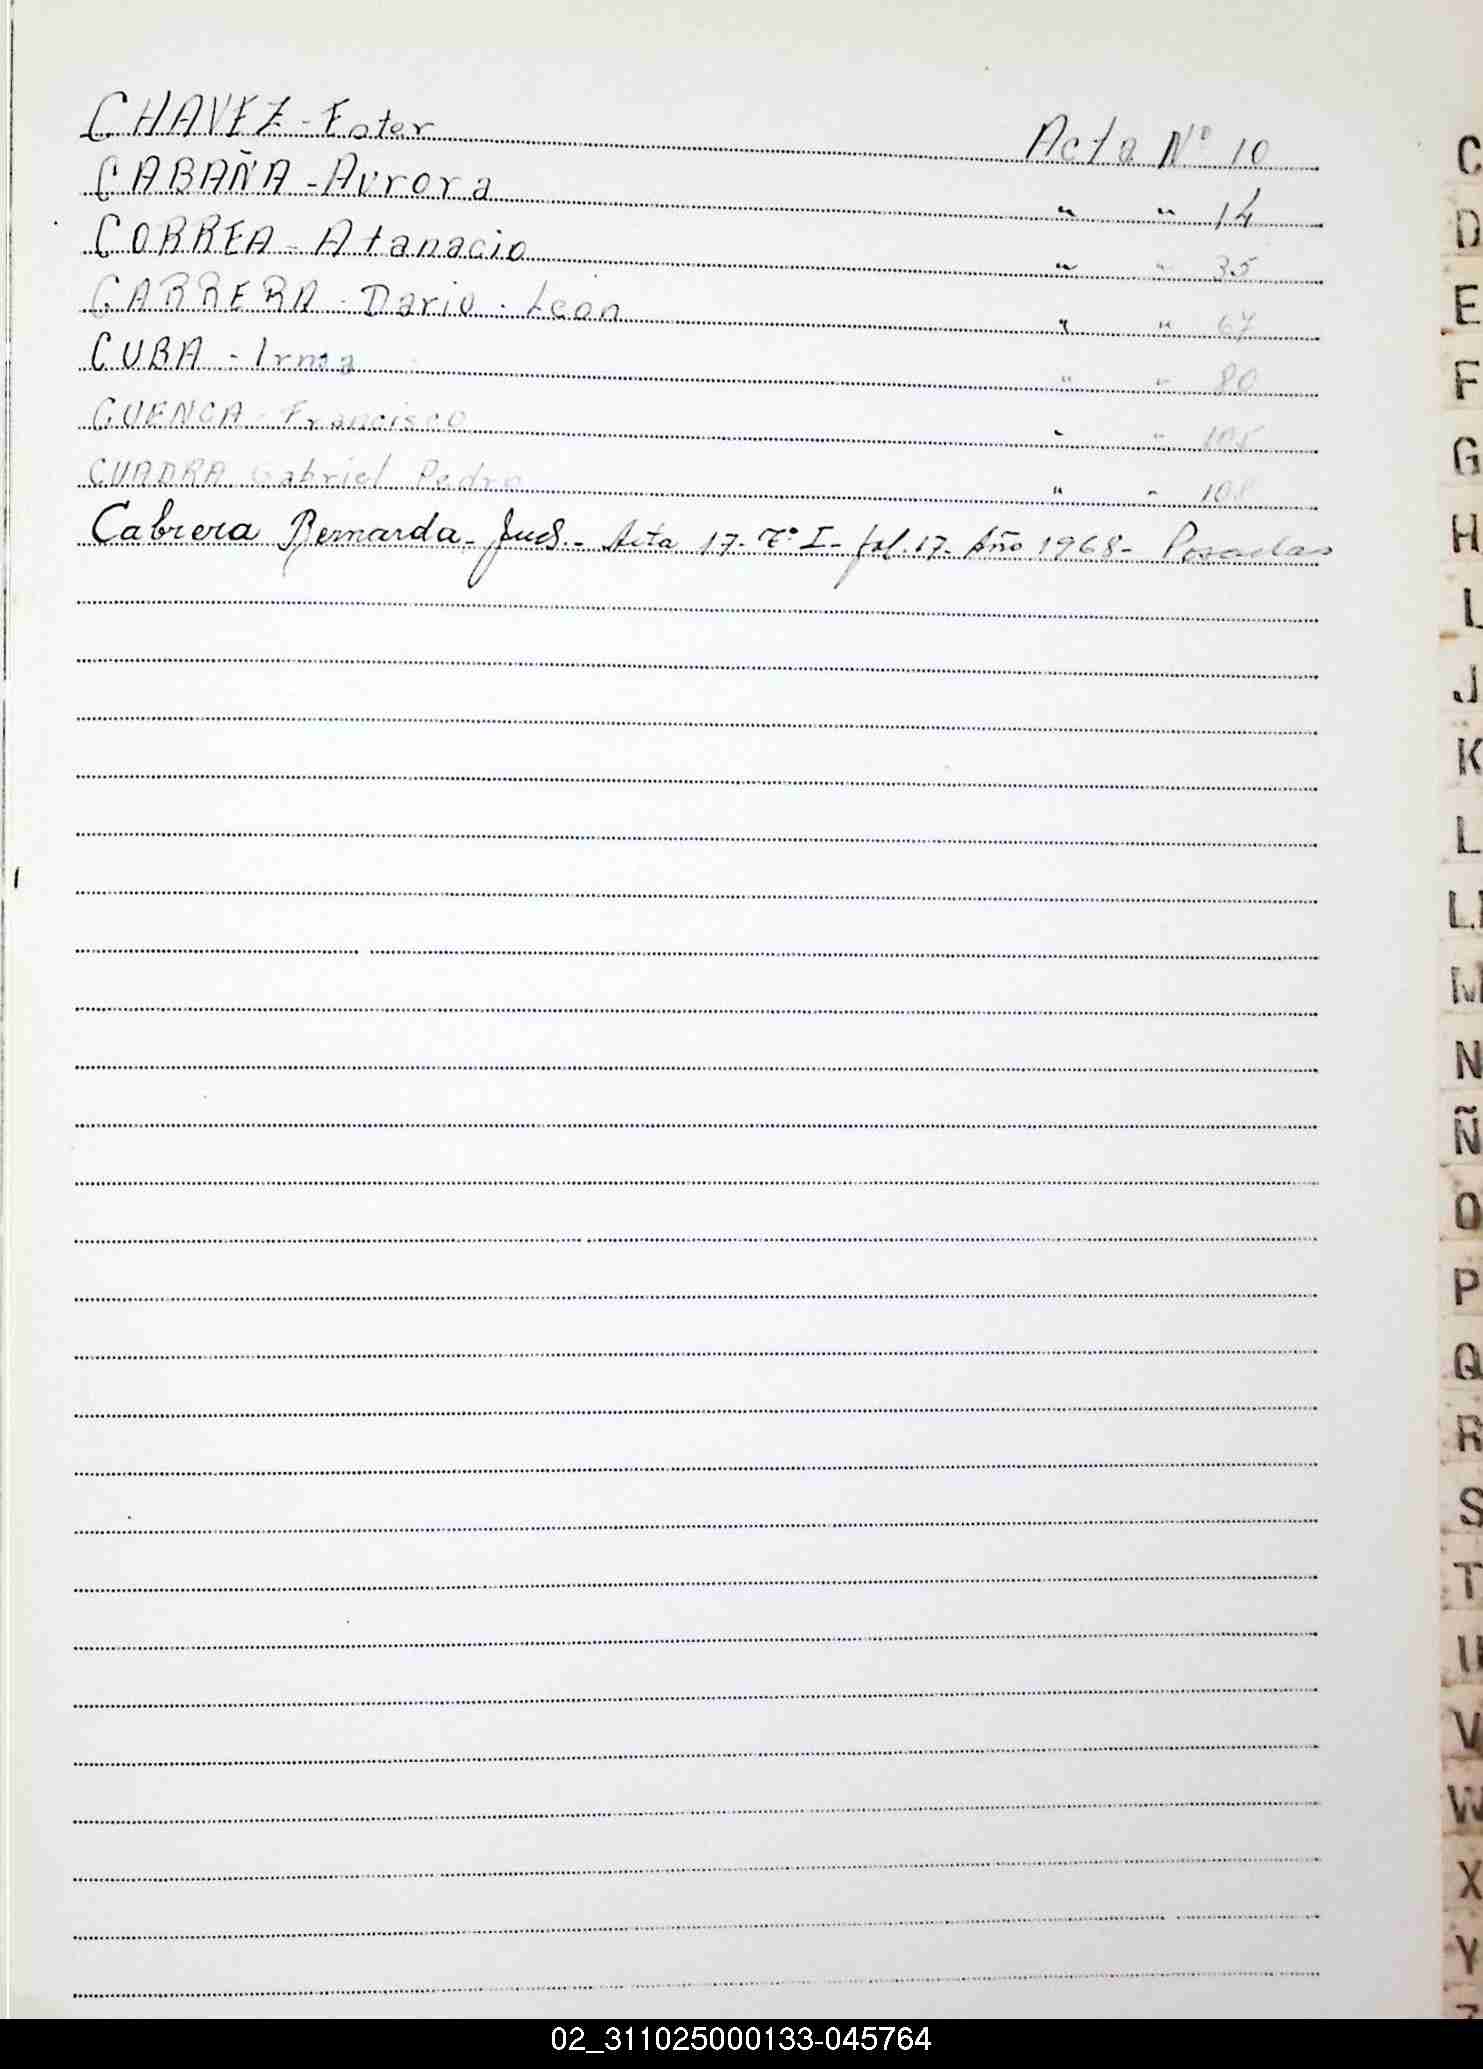 CHAVEZ - Ester Acta Nº 10
CABAÑA - Aurora " " 14
CORREA - Atanacio " " 35
CARRERA - Dario - Leon " " 67
CUBA - Irma " " 80
CUENCA - Francisco " " 105
CUADRA Gabriel Pedro " " 108
Cabrera Bernarda - Jud. - Acta 17 - Tº I - fol. 17 - Año 1968 - Posadas
C
D
E
F
G
H
I
J
K
L
LL
M
N
Ñ
O
P
Q
R
S
T
U
V
W
X
Y
Z
02_311025000133-045764